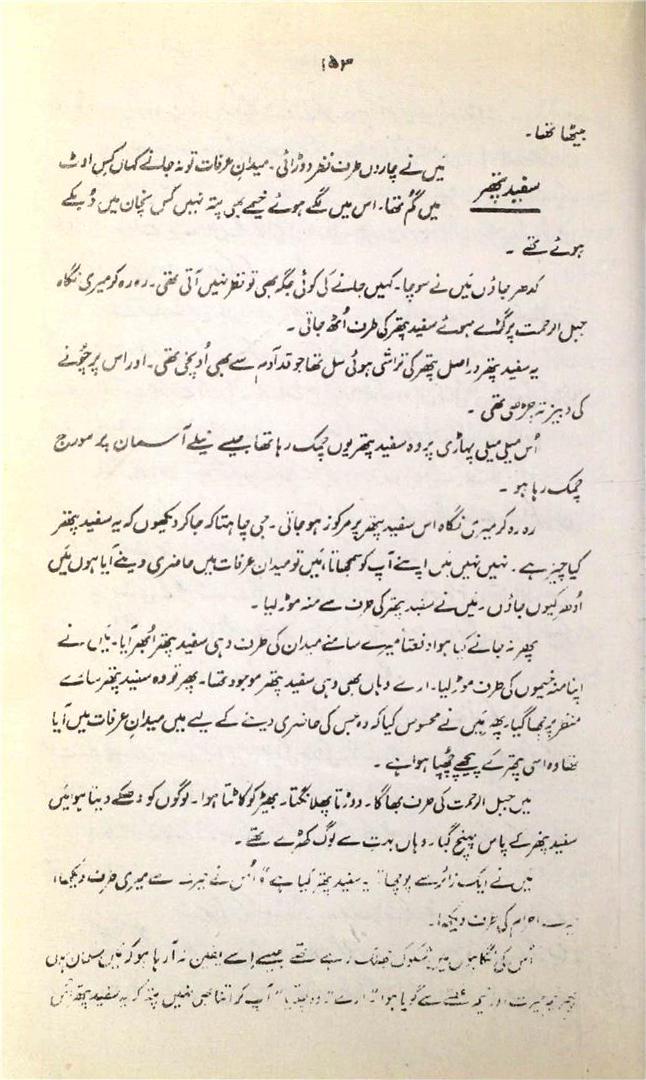 ۱۵۳
بیٹھا تھا۔
سفید پتھر
میں نے چاروں طرف نظر دوڑائی۔ میدانِ عرفات تو نہ جانے کہاں کس اوٹ
میں گم تھا۔ اس میں لگے ہوئے خیمے بھی پتہ نہیں کس نچان میں دُبکے
ہوئے تھے۔
کدھر جاؤں میں نے سوچا۔ کہیں جانے کی کوئی جگہ بھی تو نظر نہیں آتی تھی۔ رہ رہ کو میری نگاہ
جبل الرحمت پر گڑے ہوئے سفید پتھر کی طرف اُٹھ جاتی۔
یہ سفید پتھر دراصل پتھر کی تراشی ہوئی سل تھا جو قد آدم سے بھی اُونچی تھی۔ اور اس پر چُونے
کی دبیز تہ چڑھی تھی۔
اُس میلی میلی پہاڑی پر وہ سفید پتھر یوں چمک رہا تھا جیسے نیلے آسمان پر سورج
چمک رہا ہو۔
رہ رہ کر میری نگاہ اس سفید پتھر پر مرکوز ہو جاتی۔ جی چاہتا کہ جا کر دیکھوں کہ یہ سفید پتھر
کیا چیز ہے۔ نہیں نہیں میں اپنے آپ کو سمجھاتا، میں تو میدانِ عرفات میں حاضری دینے آیا ہوں میں
اُدھر کیوں جاؤں۔ میں نے سفید پتھر کی طرف سے منہ موڑ لیا۔
پھر نہ جانے کیا ہوا دفعتاً میرے سامنے میدان کی طرف وہی سفید پتھر اُبھر آیا۔ میں نے
اپنا منہ خیموں کی طرف موڑ لیا۔ ارے وہاں بھی وہی سفید پتھر موجود تھا۔ پھر تو وہ سفید پتھر سارے
منظر پر چھا گیا۔ پھر میں نے محسوس کیا کہ وہ جس کی حاضری دینے کے لیے میں میدانِ عرفات میں آیا
تھا وہ اسی پتھر کے پیچھے چھپا ہوا ہے۔
میں جبل الرحمت کی طرف بھاگا۔ دوڑتا پھلانگتا۔ بھیڑ کو کاٹتا ہوا۔ لوگوں کو دھکے دیتا ہوا میں
سفید پتھر کے پاس پہنچ گیا۔ وہاں بہت سے لوگ کھڑے تھے۔
میں نے ایک زائر سے پوچھا "یہ سفید پتھر کیا ہے" اُس نے حیرت سے میری طرف دیکھا،
احرام کی طرف دیکھا۔
اُس کی نگاہوں میں شکوک رہے تھے جیسے اسے یقین نہ آ رہا ہو کہ میں مسلمان ہوں
پھر حیرت اور غصے سے گویا ہوا "ارے" وہ "آپ کو اتنا بھی نہیں پتہ کہ یہ سفید پتھر